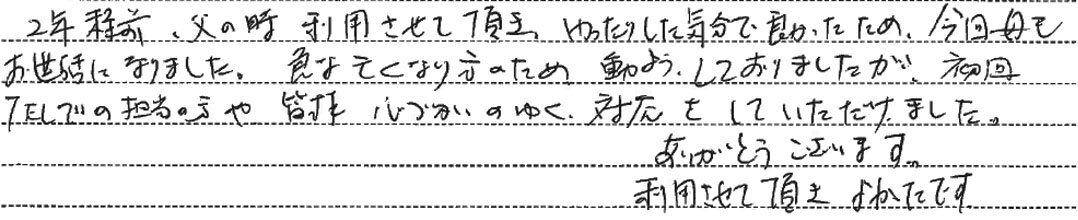 2年程前、父の時 利用させて頂き、ゆったりした気分で良かったため、今回母も
お世話になりました。急な亡くなり方のため 動よう、しておりましたが、初回
TELでの担当の方や 皆様 心づかいのゆく、対応をしていただけました。
ありがとうございます。
利用させて頂き よかたです